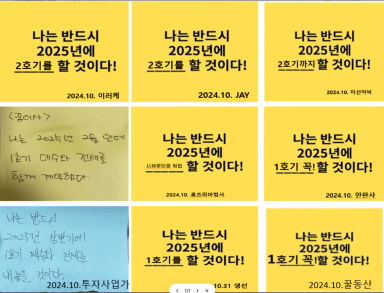 나는 반드시
2025년에
2호기를 할 것이다!
2024.10. 이러케
나는 반드시
2025년에
2호기를 할 것이다!
2024.10. JAY
나는 반드시
2025년에
2호기까지 할 것이다!
2024.10. 미선아씨
나는 2025년 2월 안에
1호기 매수와 전세를
함께 계약한다.
나는 반드시
2025년에
할 것이다!
2024.10. 로즈의마법사
나는 반드시
2025년에
1호기 꼭! 할 것이다!
2024.10. 안판사
나는 반드시
2025년 상반기에
1호기 매수와 전세를
것이다.
2024.10.투자사업가
나는 반드시
2025년에
1호기를 할 것이다!
10.31 생선
나는 반드시
2025년에
1호기 꼭!할 것이다!
2024.10.꿀동산
1/1